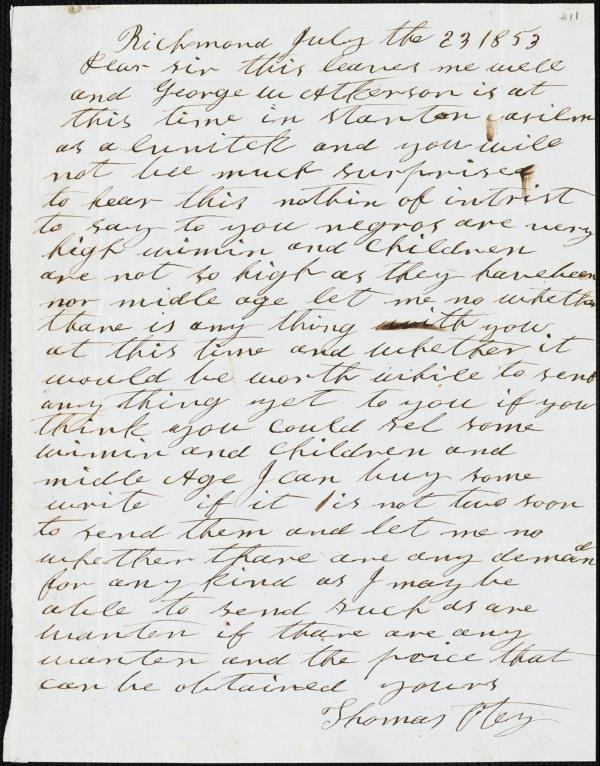 211
Richmond July the 23 1853
Dear sir this leaves me well
and George W Atkerson is at
this time in stanton asilm
as a lunitek and you will
not bee much surprised
to hear this nothin of intrist
to say to you negros are very
high wimin and children
are not so high as they have been
nor midle age let me no whether
thare is any thing with you
at this time and whether it
would be worth while to send
any thing yet to you if you
think you could sel some
wimin and children and
midle Age I can buy some
write if it is not two soon
to send them and let me no
whether thare are any deman
for any kind as I may be
able to send such as are
wanten if thare are any
wanten and the price that
can be obtained yours
Thomas Otey